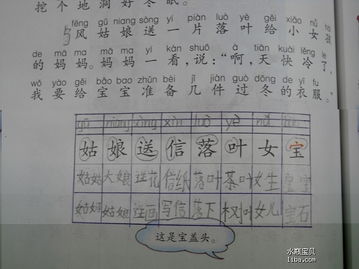 挖个地洞好冬眠。
fēng gū niang sòng yí piàn luò yè gěi xiǎo nǚ
风姑娘送一片落叶给小女孩
de mā ma mā ma yí kàn shuō ā tiān kuài lěng le
的妈妈。妈妈一看，说：“啊，天快冷了，
wǒ yào gěi bǎo bao zhǔn bèi jǐ jiàn guò dōng de yī fu
我要给宝宝准备几件过冬的衣服。”
gū niang sòng xìn luò yè nǚ bǎo
姑 娘 送 信 落 叶 女 宝
姑姑 大娘 送花 信纸 落叶 茶叶 女生 宝宝
姑妈 送画 写信 落下 树叶 女儿 宝石
这是宝盖头。
水颖宝贝
liba.com